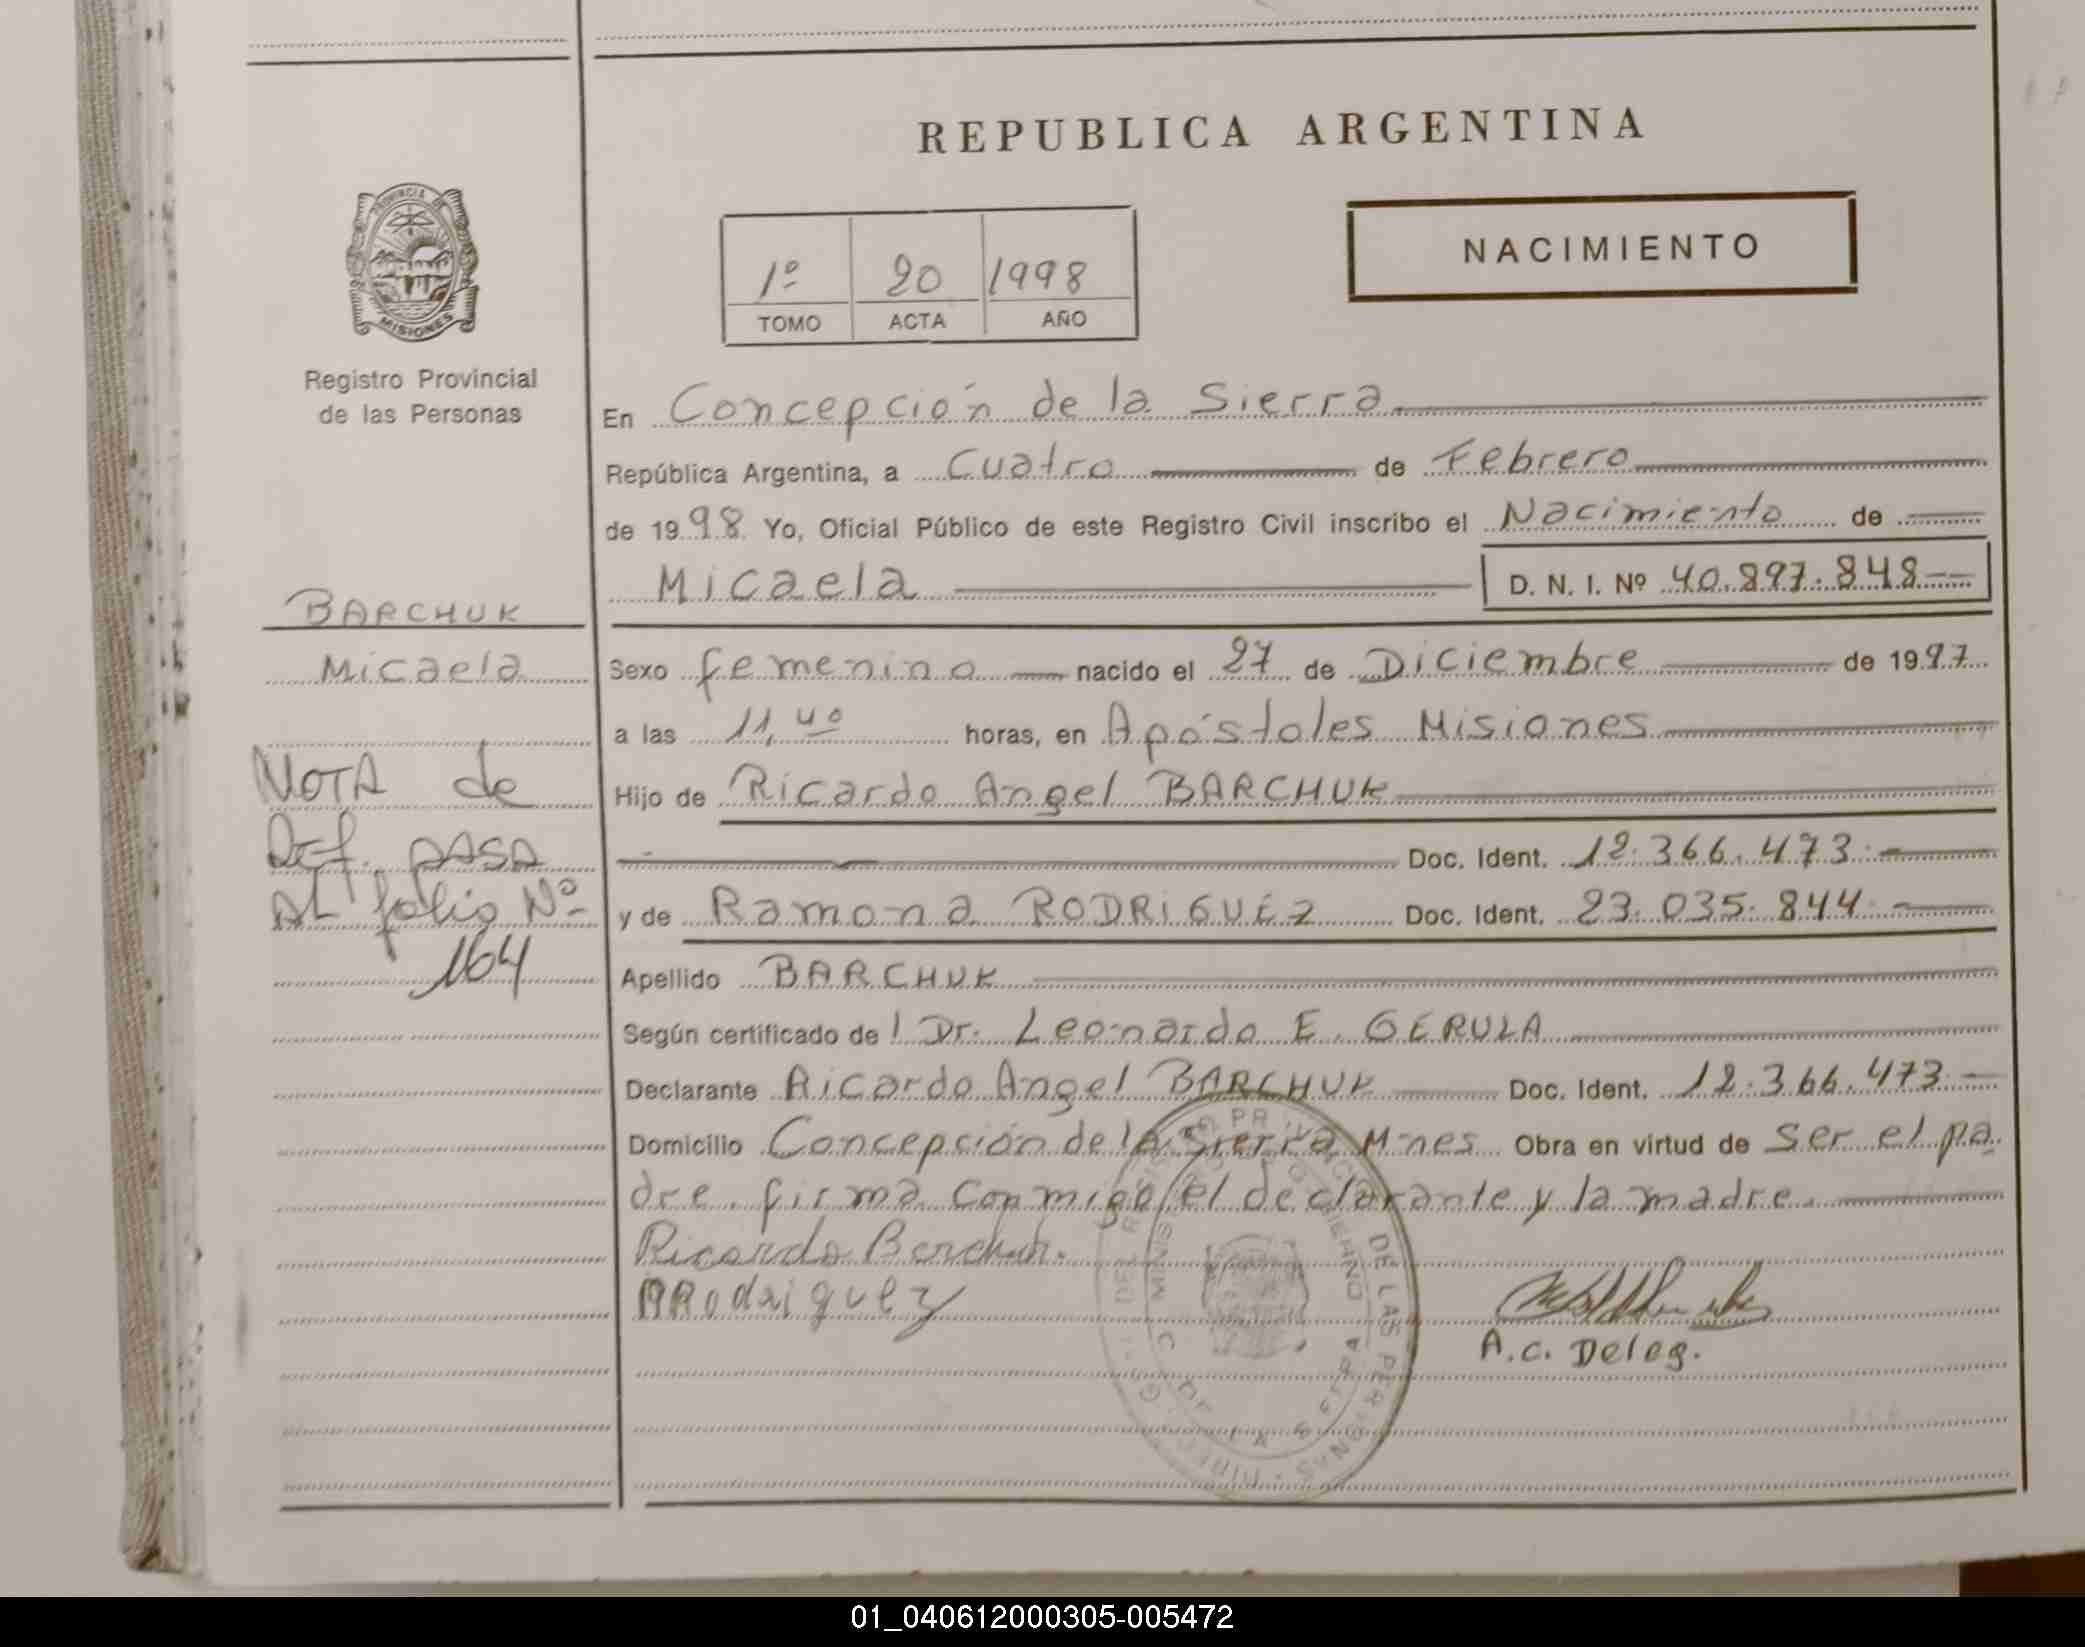 REPUBLICA ARGENTINA
PROVINCIA DE
MISIONES
Registro Provincial
de las Personas
1º 20 1998
TOMO ACTA AÑO
NACIMIENTO
En Concepción de la Sierra
República Argentina, a Cuatro de Febrero
de 1998 Yo, Oficial Público de este Registro Civil inscribo el Nacimiento de
Micaela D. N. I. Nº 40.897.848
BARCHUK
Micaela
Sexo femenino nacido el 27 de Diciembre de 1997
a las 11,40 horas, en Apóstoles Misiones
Hijo de Ricardo Angel BARCHUK
Doc. Ident. 12.366.473
y de Ramona RODRIGUEZ Doc. Ident. 23.035.844
NOTA de
Def. PASA
AL folio Nº
164
Apellido BARCHUK
Según certificado del Dr. Leonardo E. GERULA
Declarante Ricardo Angel BARCHUK Doc. Ident. 12.366.473
Domicilio Concepción de la Sierra Mnes Obra en virtud de ser el pa
dre. firma conmigo el declarante y la madre.
Ricardo Barchuk.
RRodriguez
A.C. Deleg.
01_040612000305-005472